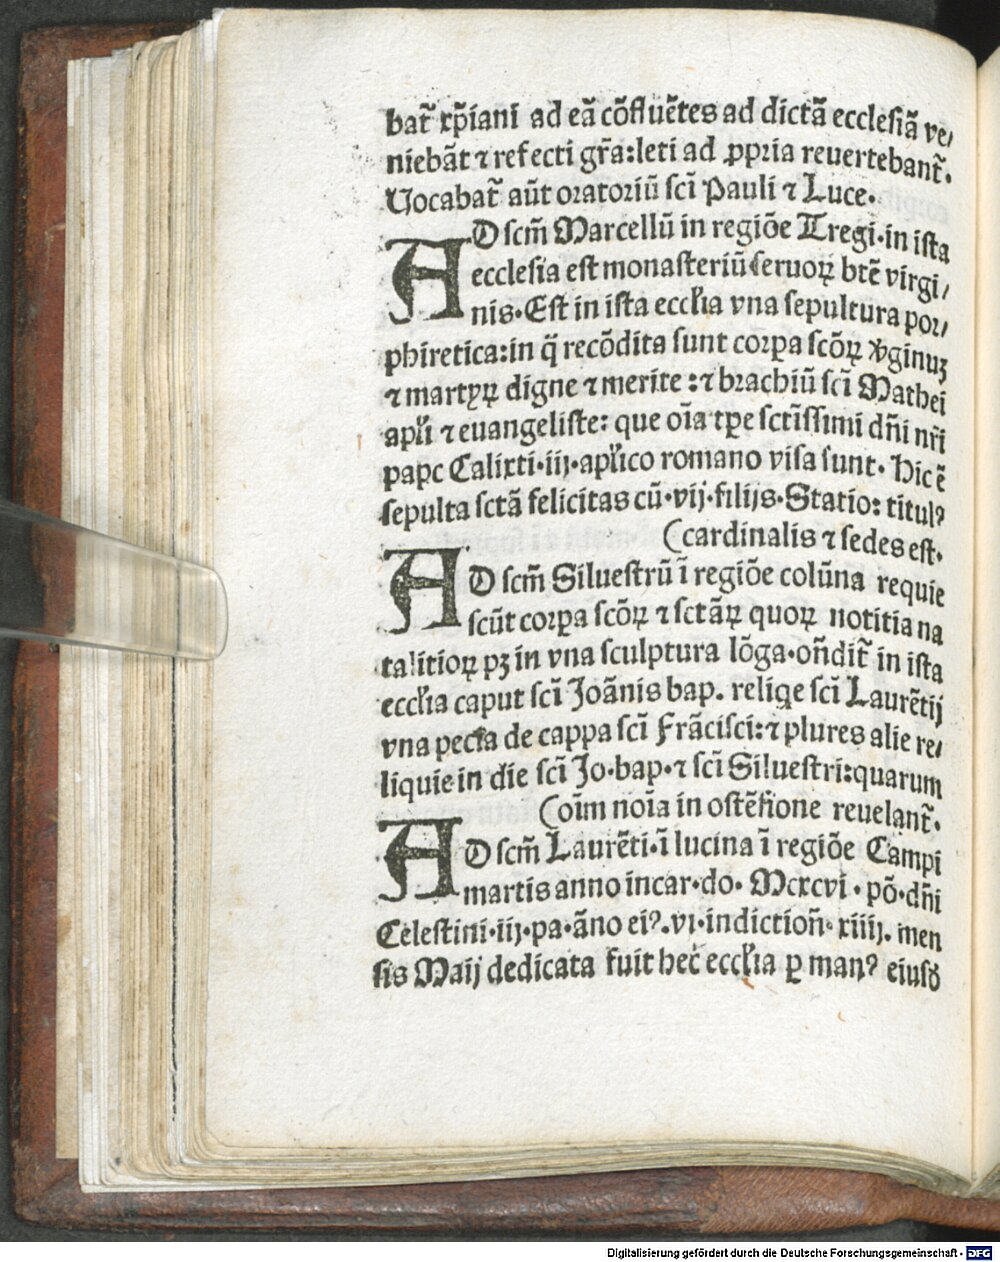 bat᷑ xp̃iani ad eã cõfluẽtes ad dictã eccleſiã ve/
niebãt ⁊ refecti gr̃a:leti ad ꝓpria reuertebant᷑.
Vocabat᷑ aũt oratoriũ ſcĩ Pauli ⁊ Luce.
AD ſcm̃ Marcellũ in regiõe Tregi·in iſta
eccleſia eſt monaſteriũ ſeruoꝝ btẽ virgi/
nis·Eſt in iſta eccl̃ia vna ſepultura por/
phiretica:in q̃ recõdita ſunt corꝑa ſcõꝝ v̕ginuꝫ
⁊ martyꝝ digne ⁊ merite:⁊ brachiũ ſcĩ Mathei
apl̃i ⁊ euangeliſte: que oĩa tꝑe ſctĩſſimi dñi nr̃i
pape Calixti·iij·apl̃ico romano viſa ſunt. Hic ẽ
ſepulta ſctã felicitas cũ·vij·filijs·Statio: titulꝰ
(cardinalis ⁊ ſedes est.
AD ſcm̃ Silueſtrũ ĩ regiõe colũna requie
ſcũt corꝑa ſcõꝝ ⁊ ſctãꝝ quoꝝ notitia na
talitioꝝ pꝫ in vna ſculptura lõga·oñdit᷑ in iſta
eccl̃ia caput ſcĩ Joãnis bap. reliqe ſcĩ Laurẽtij
vna pecia de cappa ſcĩ Frãciſci:⁊ plures alie re/
liquie in die ſcĩ Jo·bap·⁊ ſcĩ Silueſtri:quarum
(oĩm noĩa in oſtẽſione reuelant᷑.
AD ſcm̃ Laurẽti·ĩ lucina ĩ regiõe Campi
martis anno incar·do· Mcxcvi·põ·dñi
Celeſtini·iij·pa·ãno eiꝰ.vi·indictioñ·xiiij. men
ſis Maij dedicata fuit hec eccl̃ia ꝑ manꝰ eiuſd̃
Digitalisierung gefördert durch die Deutsche Forschungsgemeinschaft - DFG